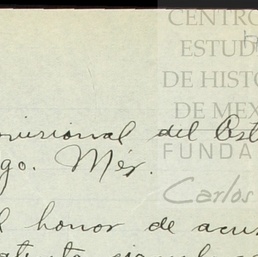 CENTRO
ESTUD
DE HISTO
DE MEX
FUNDA
Carlos
ovisional del Est
go. Méx.
l honor de acus
atenta